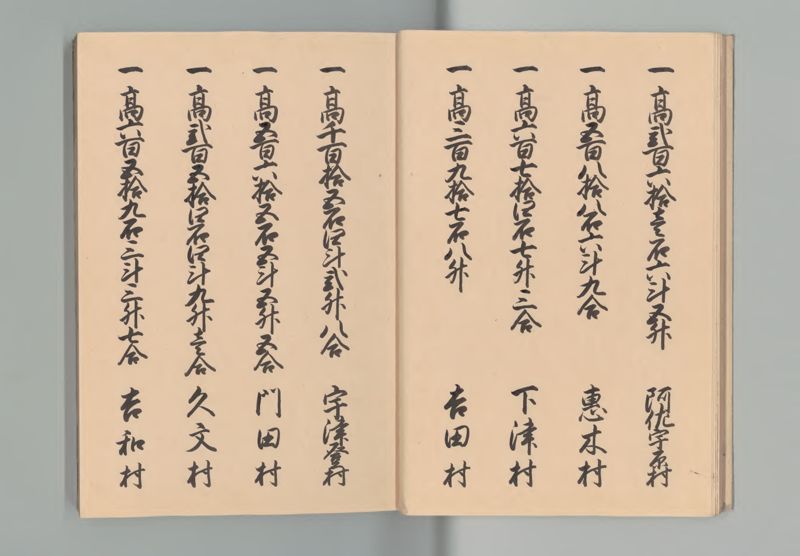 一 高弐百六拾壱石六斗五升 阿佐宇原村
一 高五百八拾八石六斗九合 惠木村
一 高六百七拾四石七升三合 下津村
一 高三百九拾七石八升 吉田村
一 高千百拾五石四斗弐升八合 宇津登村
一 高五百六拾五石五斗五升五合 門田村
一 高弐百五拾四石四斗九升壱合 久文村
一 高六百五拾九石三斗三升七合 吉和村